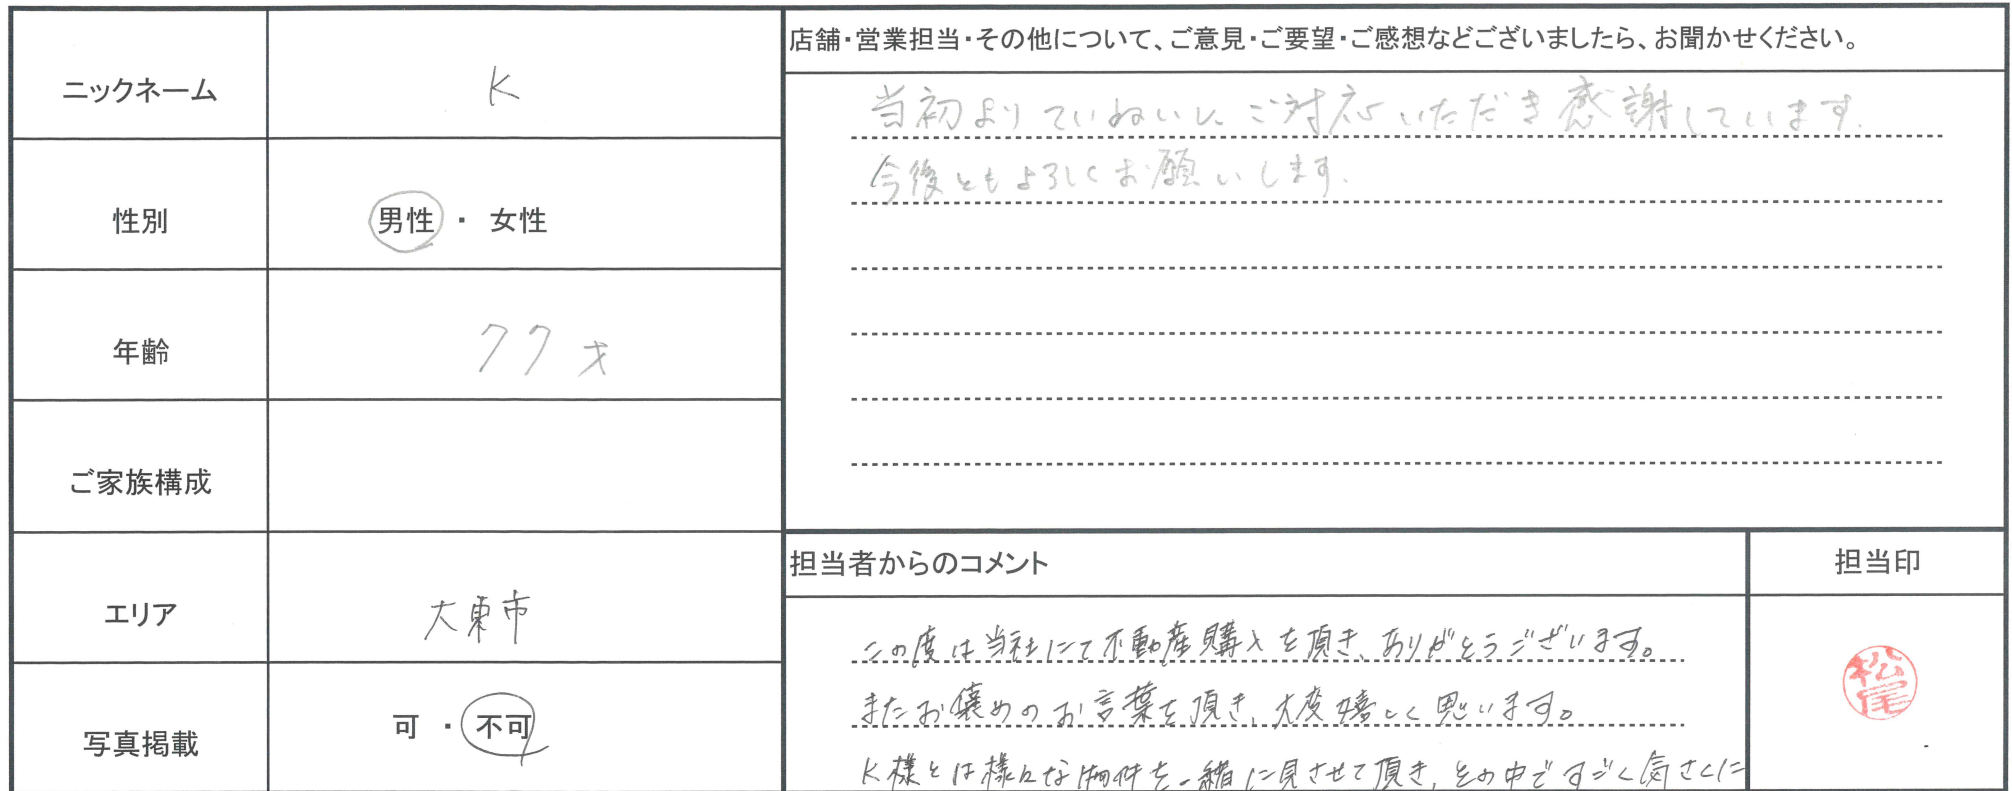 ニックネーム
K
性別
男性 ・ 女性
年齢
77才
ご家族構成
エリア
大東市
写真掲載
可 ・ 不可
店舗・営業担当・その他について、ご意見・ご要望・ご感想などございましたら、お聞かせください。
当初よりていねいにご対応いただき感謝しています.
今後ともよろしくお願いします.
担当者からのコメント
この度は当社にて不動産購入を頂き、ありがとうございます。
またお褒めのお言葉を頂き、大変嬉しく思います。
K様とは様々な物件を一緒に見させて頂き、その中ですごく気さくに
担当印
松尾